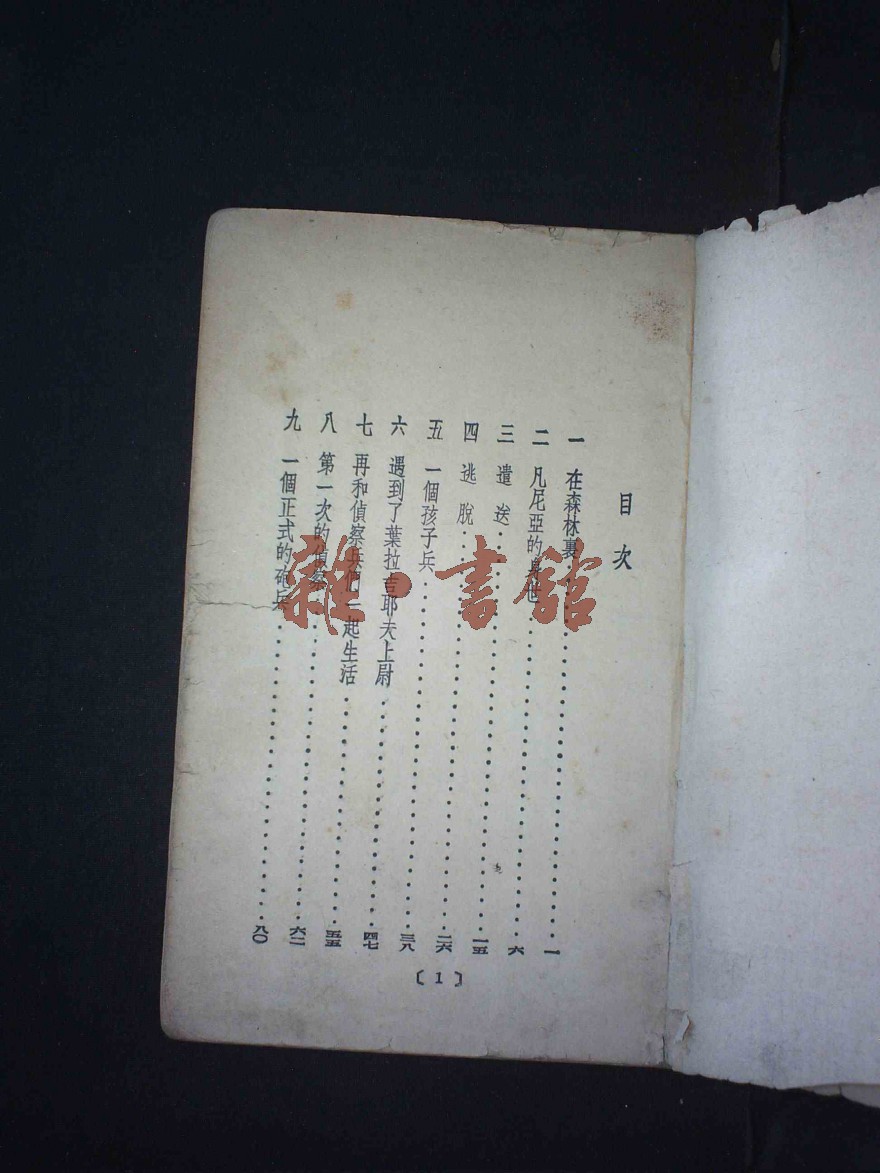 目次
一 在森林裏 一
二 凡尼亞的身世 六
三 遣送 一五
四 逃脫 二六
五 一個孩子兵 三八
六 遇到了葉拉吉耶夫上尉 四七
七 再和偵察兵們一起生活 五五
八 第一次的偵察 六二
九 一個正式的砲兵 八〇
〔1〕
雜·書館